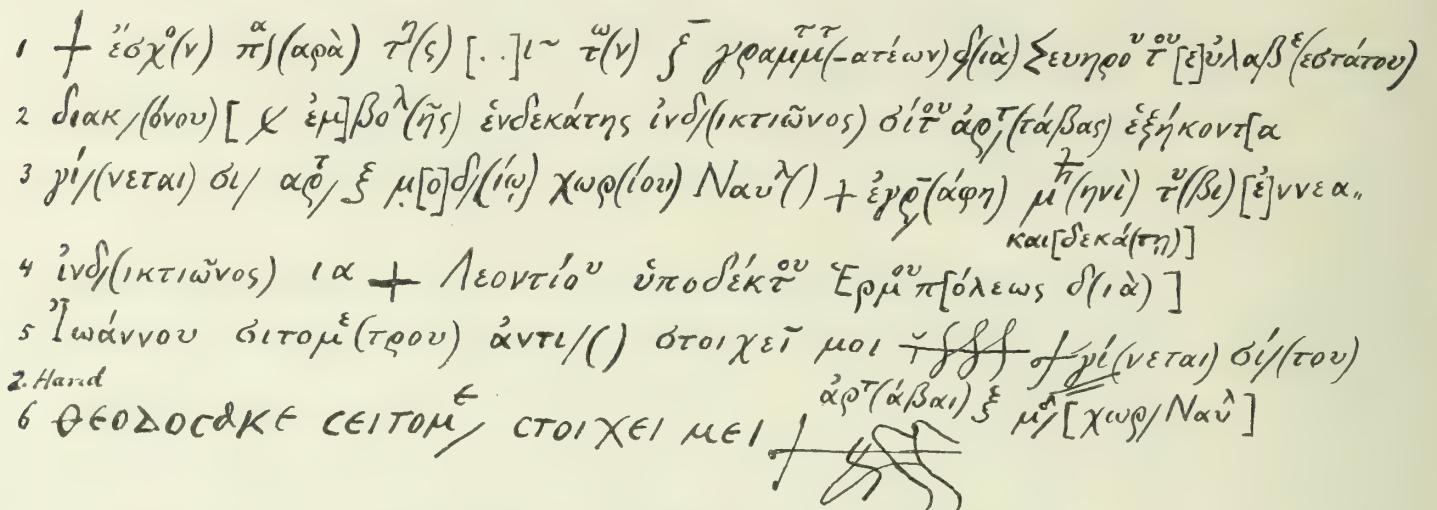 1 + ἔσχο(ν) παʃ(αρὰ) τη(ς) [..]ι~ τω(ν) ξ̄ γραμμττ(-ατέων) δ(ιὰ) Σευηρου του [ε]ὐλαβε(εστάτου)
2 διακ/(όνου) [ ϗ ἐμ]βολ(ῆς) ἑνδεκάτης ἰνδ/(ικτιῶνος) σίτου ἀρτ/(τάβας) ἑξήκοντ[α
3 γί/(νεται) σι/ αρτ/ ξ μ[ο]δ/(ίῳ) χωρ(ίου) Ναυλ() + ἐγρ(άφη) μη(ηνὶ) τυ(βι) [ἐ]ννεα..
και[δεκά(τῃ)]
4 ἰνδ/(ικτιῶνος) ια + Λεοντίου ὑποδέκτου Ἑρμουπ[όλεως δ(ιὰ) ]
5 Ἰωάννου σιτομε(τρου) ἀντι/() στοιχεῖ μοι + γί(νεται) σί/(του)
ἀρτ(άβαι) ξ μδ/[χωρ/Ναυλ]
2. Hand
6 ΘΕΟΔΟCΑΚΕ CΕΙΤΟΜΕ/ CΤΟΙΧΕΙ ΜΕΙ